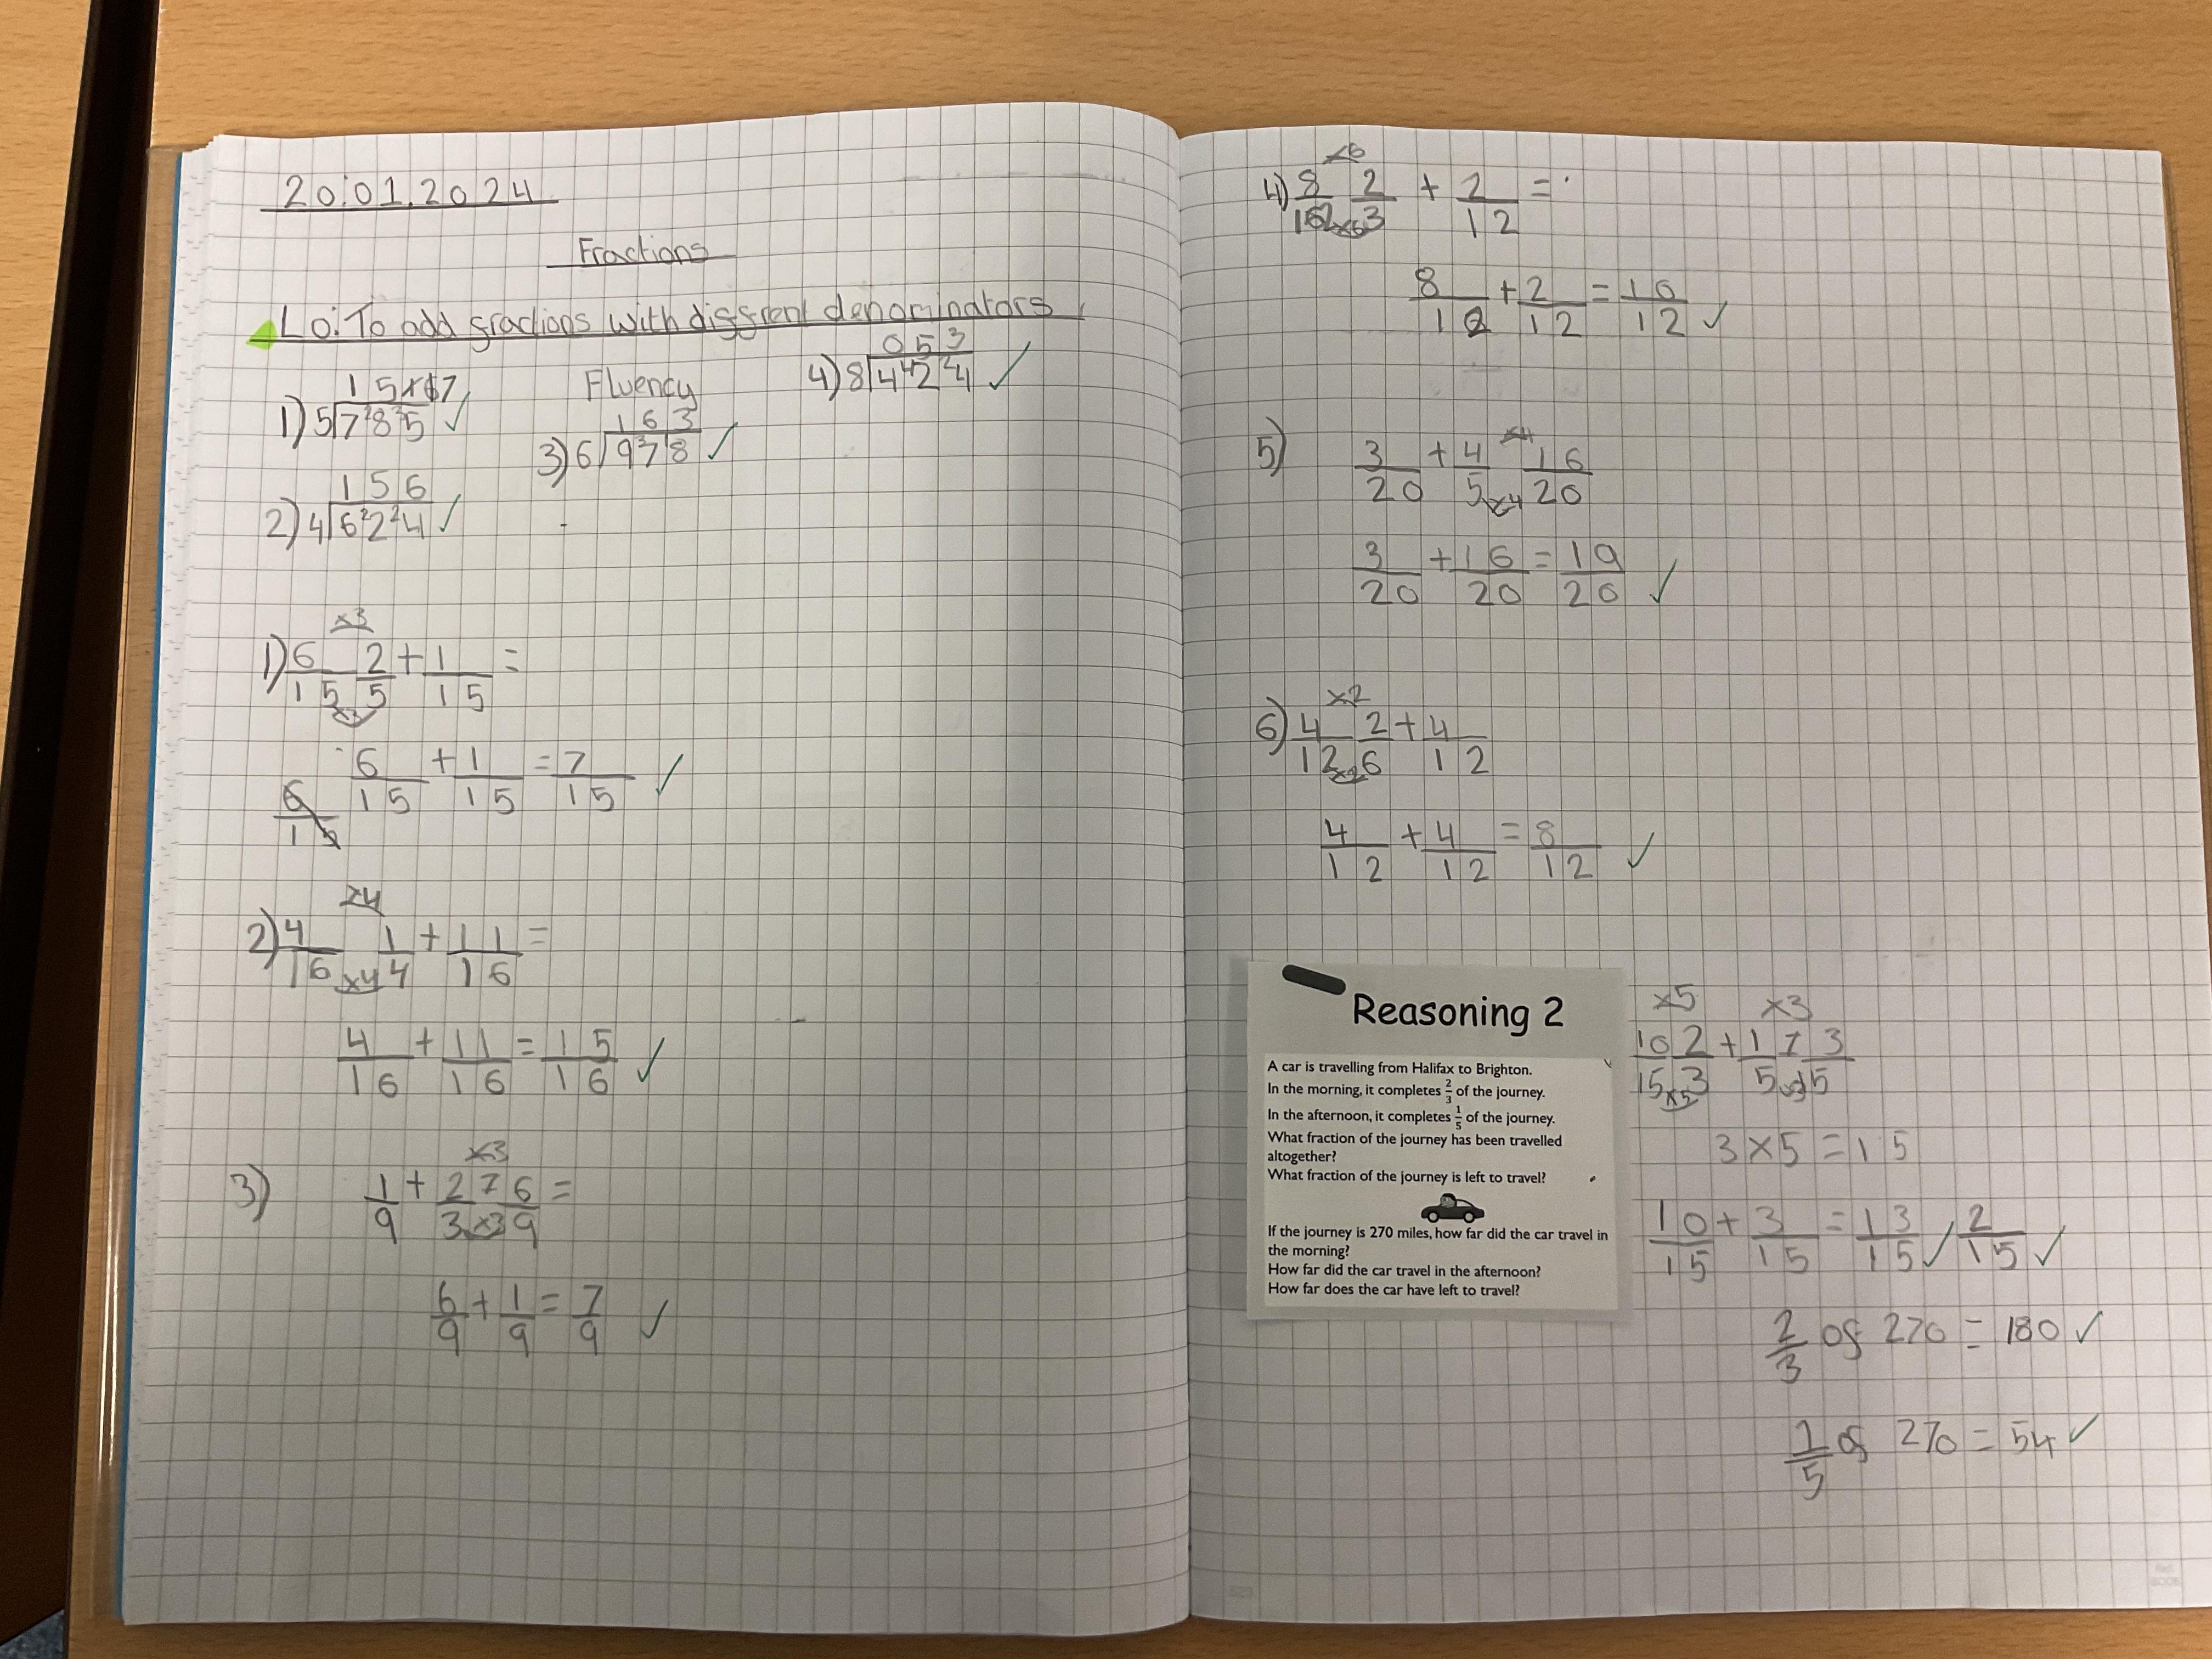 20.01.2024
Fractions
Lo: To add fractions with diffrent denominators
Fluency
1) 5 7 ²8 ³5 ✓
1 5 7
2) 4 6 ²2 ²4 ✓
1 5 6
3) 6 9 ³7 ¹8 ✓
1 6 3
4) 8 4 ⁴2 ²4 ✓
0 5 3
×3
1) 6/15 2/5 + 1/15 =
×3
6/15 + 1/15 = 7/15 ✓
6/15
×4
2) 4/16 1/4 + 11/16 =
×4
4/16 + 11/16 = 15/16 ✓
×3
3) 1/9 + 2/3 6/9 =
×3
6/9 + 1/9 = 7/9 ✓
×6
4) 8/12 2/3 + 2/12 =
8/12 + 2/12 = 10/12 ✓
×4
5) 3/20 + 4/5 16/20
×4
3/20 + 16/20 = 19/20 ✓
×2
6) 4/12 2/6 + 4/12
×2
4/12 + 4/12 = 8/12 ✓
Reasoning 2
A car is travelling from Halifax to Brighton.
In the morning, it completes 2/3 of the journey.
In the afternoon, it completes 1/5 of the journey.
What fraction of the journey has been travelled
altogether?
What fraction of the journey is left to travel?
If the journey is 270 miles, how far did the car travel in
the morning?
How far did the car travel in the afternoon?
How far does the car have left to travel?
×5 ×3
10/15 2/3 + 1/5 3/15
×5
3 × 5 = 15
10/15 + 3/15 = 13/15 ✓ 2/15 ✓
2/3 of 270 = 180 ✓
1/5 of 270 = 54 ✓